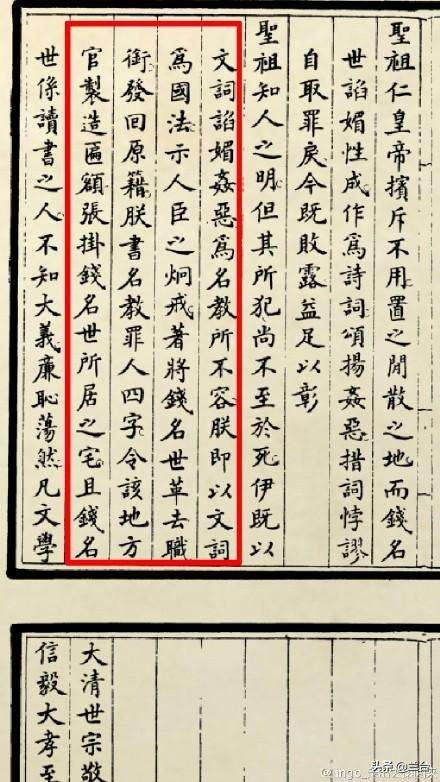 聖祖仁皇帝擯斥不用置之閒散之地而錢名
世諂媚性成作爲詩詞頌揚姦惡措詞悖謬
自取罪戾今既敗露益足以彰
聖祖知人之明但其所犯尚不至於死伊既以
文詞諂媚姦惡爲名教所不容朕即以文詞
爲國法示人臣之炯戒著將錢名世革去職
銜發回原籍朕書名教罪人四字令該地方
官製造匾額張掛錢名世所居之宅且錢名
世係讀書之人不知大義廉恥蕩然凡文學
大清世宗敬
信毅大孝至
头条@兰台